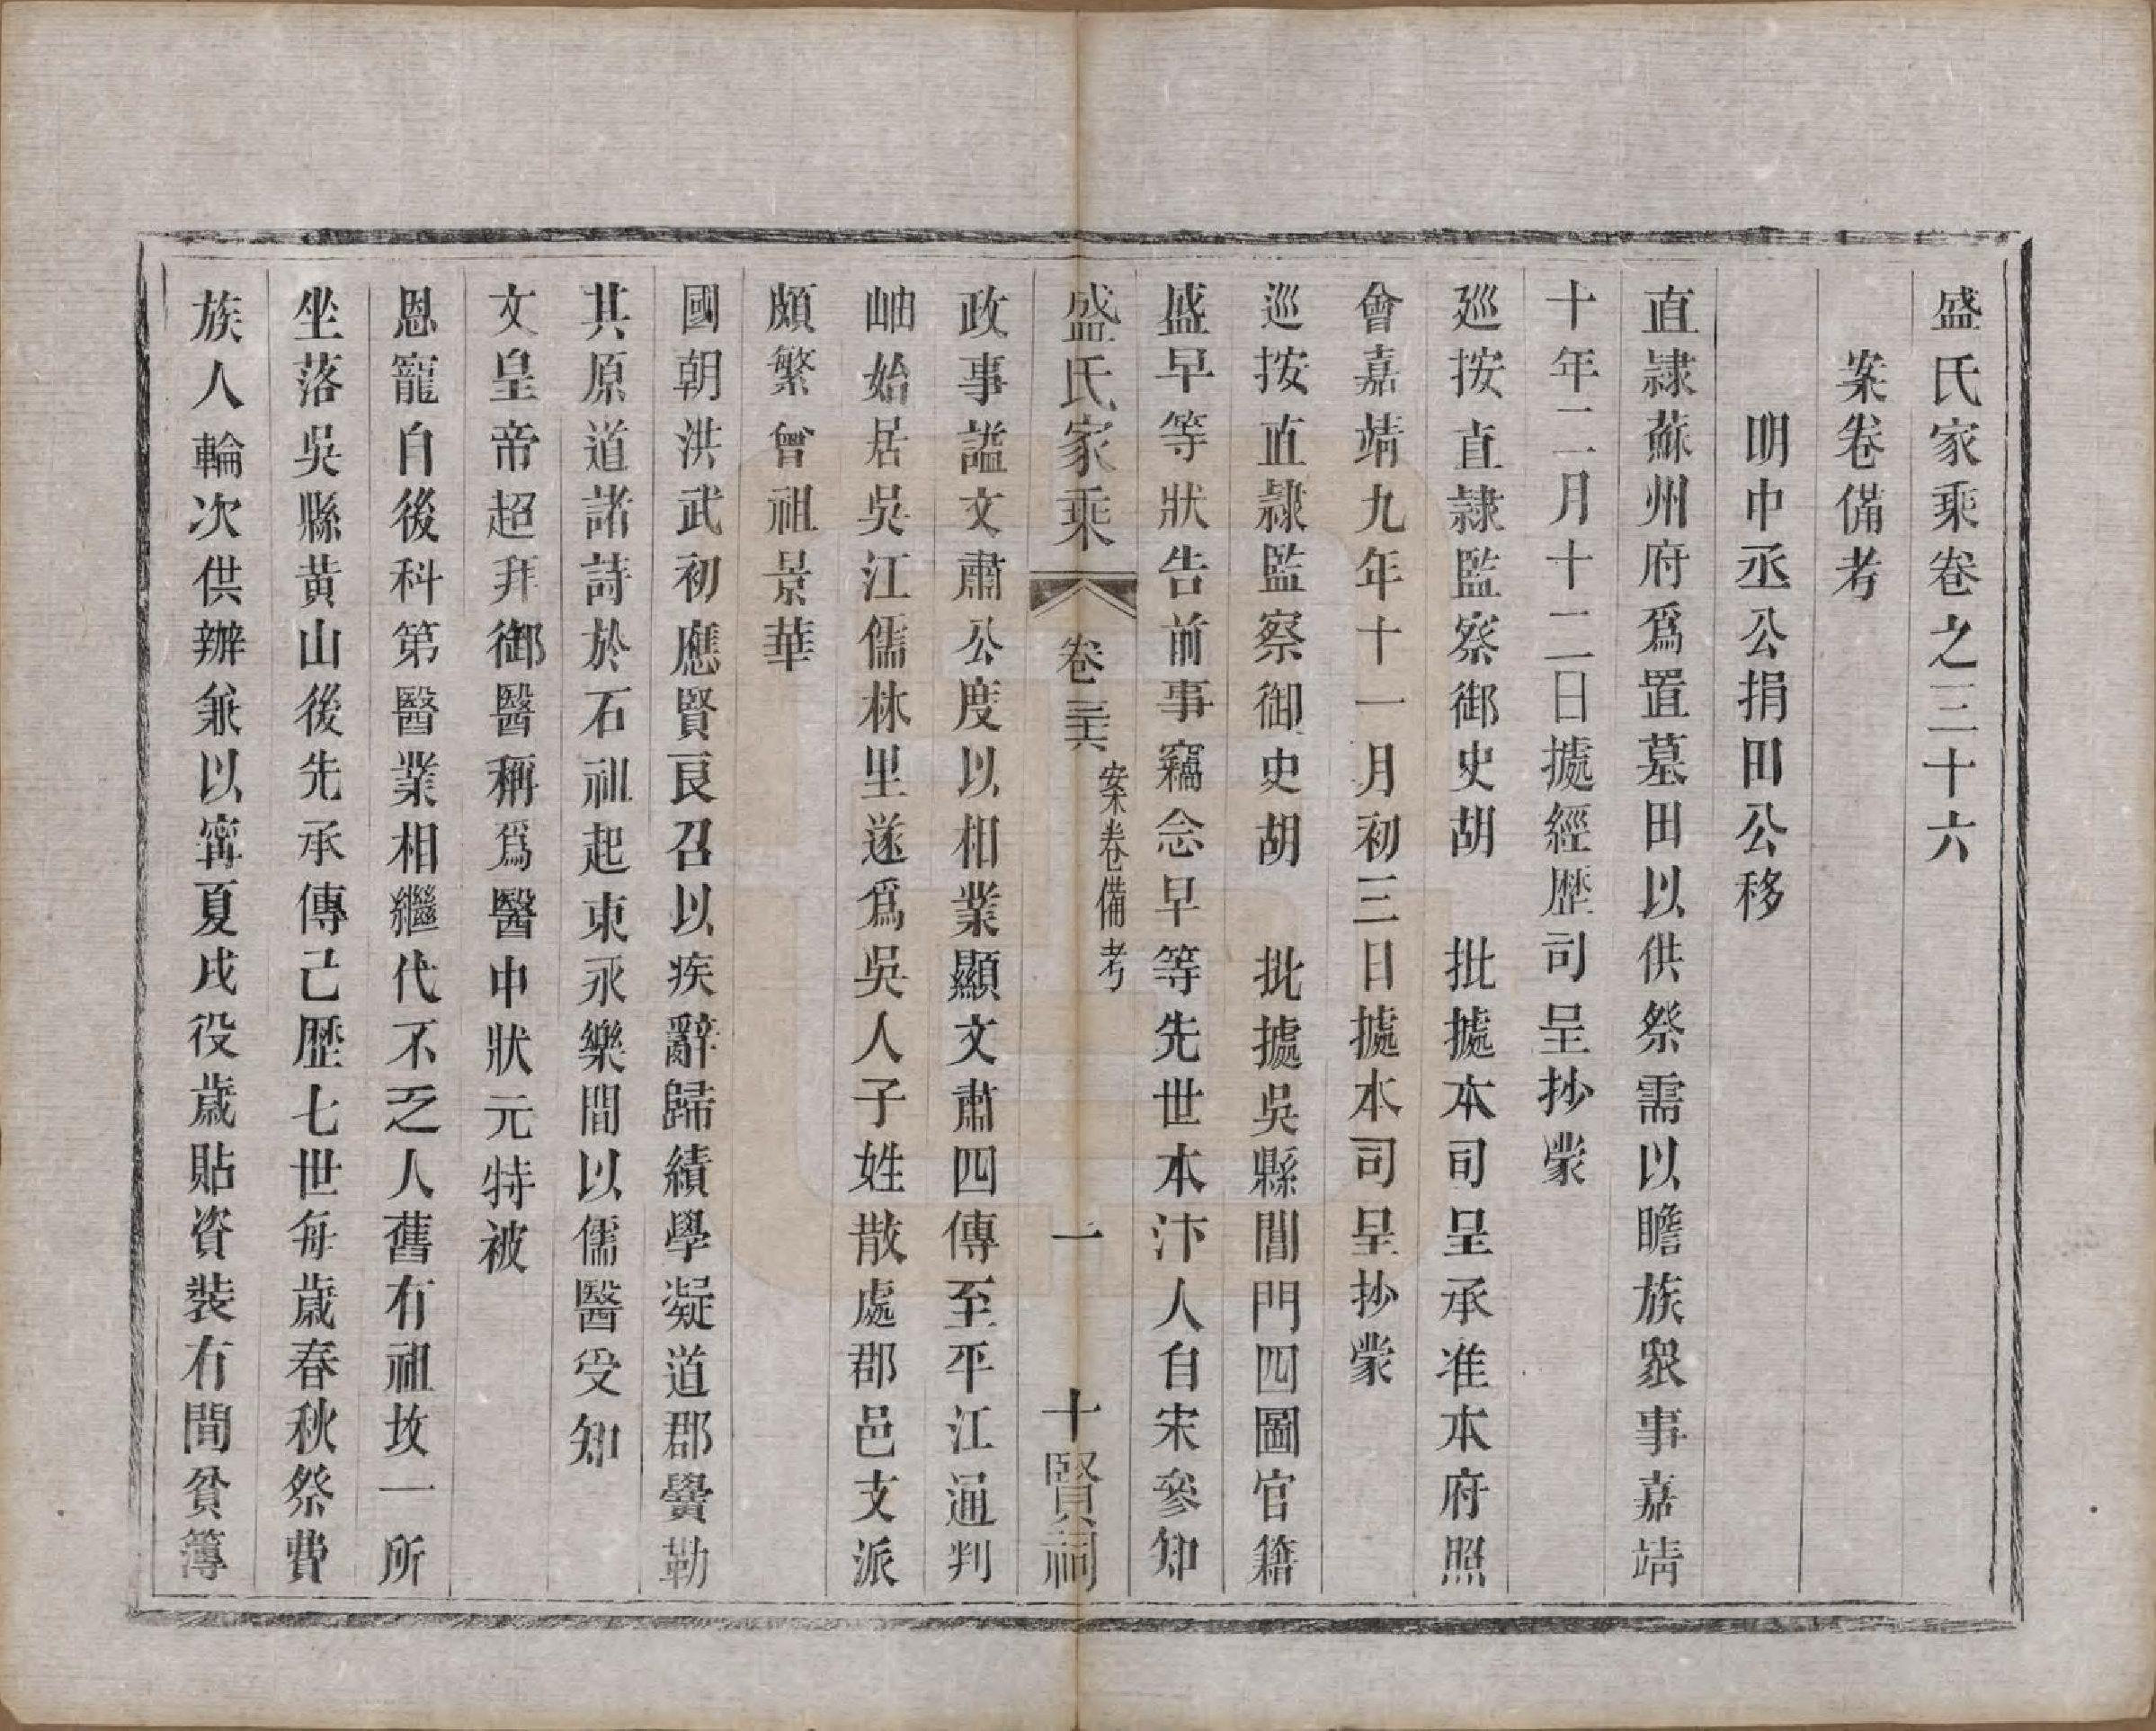 盛氏家乘卷之三十六
案卷備考
明中丞公捐田公移
直隸蘇州府爲置墓田以供祭需以瞻族衆事嘉靖
十年二月十二日據經歷司呈抄蒙
巡按直隸監察御史胡　批據本司呈承准本府照
會嘉靖九年十一月初三日據本司呈抄蒙
巡按直隸監察御史胡　批據吳縣閶門四圖官籍
盛早等狀告前事竊念早等先世本汴人自宋參知
盛氏家乘　卷三十六　案卷備考　一　十賢祠
政事謚文肅公度以相業顯文肅四傳至平江通判
岫始居吳江儒林里遂爲吳人子姓散處郡邑支派
頗繁曾祖景華
國朝洪武初應賢良召以疾辭歸績學凝道郡黌勒
其原道諸詩於石祖起東永樂間以儒醫受知
文皇帝超拜御醫稱爲醫中狀元特被
恩寵自後科第醫業相繼代不乏人舊有祖坟一所
坐落吳縣黃山後先承傳己歷七世每歲春秋祭費
族人輪次供辦兼以甯夏戌役歲貼資裝有間貧簿